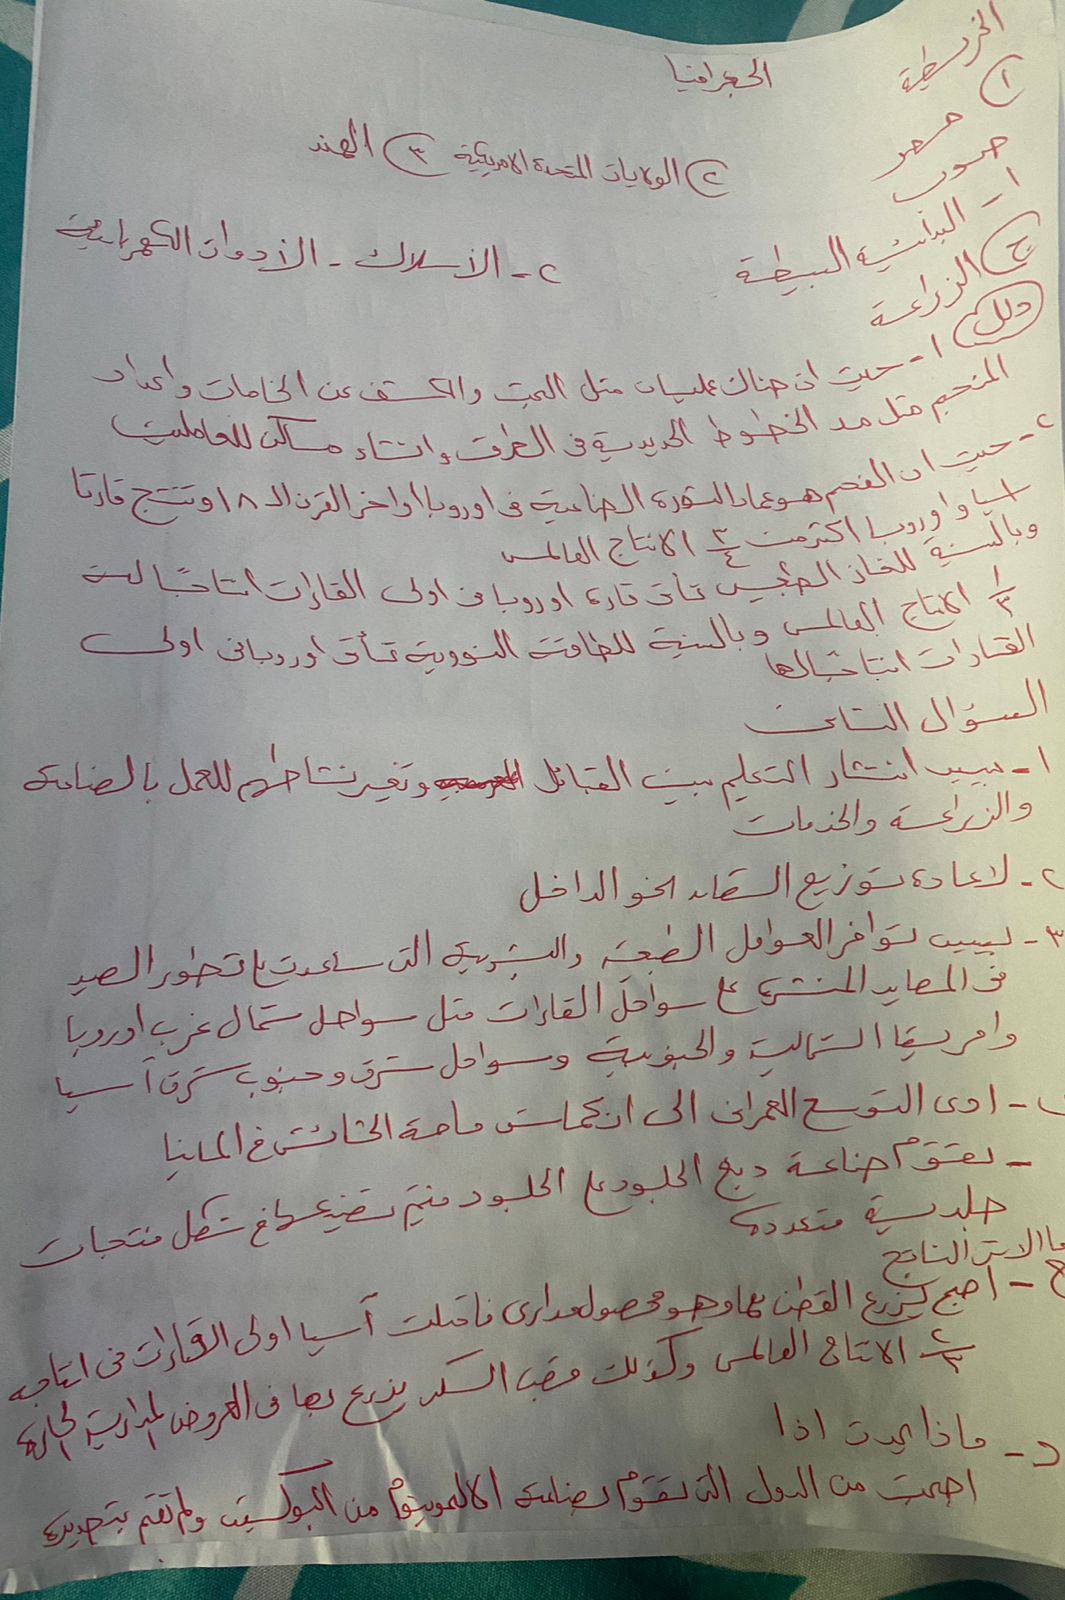 الجغرافيا
الخريطة
① مصر
② الولايات المتحدة الامريكية ③ الهند
صوب
١- البدائية البسيطة
٢- الأسلاك - الأدوات الكهربائية
ج الزراعة
دلل ١- حيث ان هناك عمليات مثل البحث والكشف عن الخامات واعداد
المنجم مثل مد الخطوط الحديدية فى الطرق وانشاء مساكن للعاملين
٢- حيث ان الفحم هو عماد الثورة الصناعية فى اوروبا اواخر القرن الـ ١٨ وتنتج قارتا
اسيا واوروبا اكثر من ٣/٤ الانتاج العالمى
وبالنسبة للغاز الطبيعى تأتى قارة اوروبا فى اولى القارات انتاجًا
١/٣ الانتاج العالمى وبالنسبة للطاقة النووية تأتى اوروبا فى اولى
القارات انتاجًا لها
السؤال الثانى
١- بسبب انتشار التعليم بين القبائل وتغير نشاطهم للعمل بالصناعة
والزراعة والخدمات
٢- لاعادة توزيع السكان نحو الداخل
٣- بسبب توافر العوامل الطبيعية والبشرية التى ساعدت على تطور الصيد
فى المصايد المنتشرة على سواحل القارات مثل سواحل شمال غرب اوروبا
وافريقيا الشمالية والجنوبية وسواحل شرق وجنوب شرق آسيا
ب - ادى التوسع العمرانى الى انكماش مساحة الحشائش فى المانيا
- تقوم صناعة دبغ الجلود على الجلود فيتم تصنيعها فى شكل منتجات
جلدية متعددة
ما الاثر الناتج
ج - اصبح يزرع القطن بها وهو محصول مدارى فاحتلت آسيا اولى القارات فى انتاجه
٢/٣ الانتاج العالمى وكذلك قصب السكر يزرع بها فى العروض المدارية الحارة
د - ماذا يحدث اذا
اصبحت من الدول التى تقوم بصناعة الالمونيوم من البوكسيت ولم تقم بتصديره